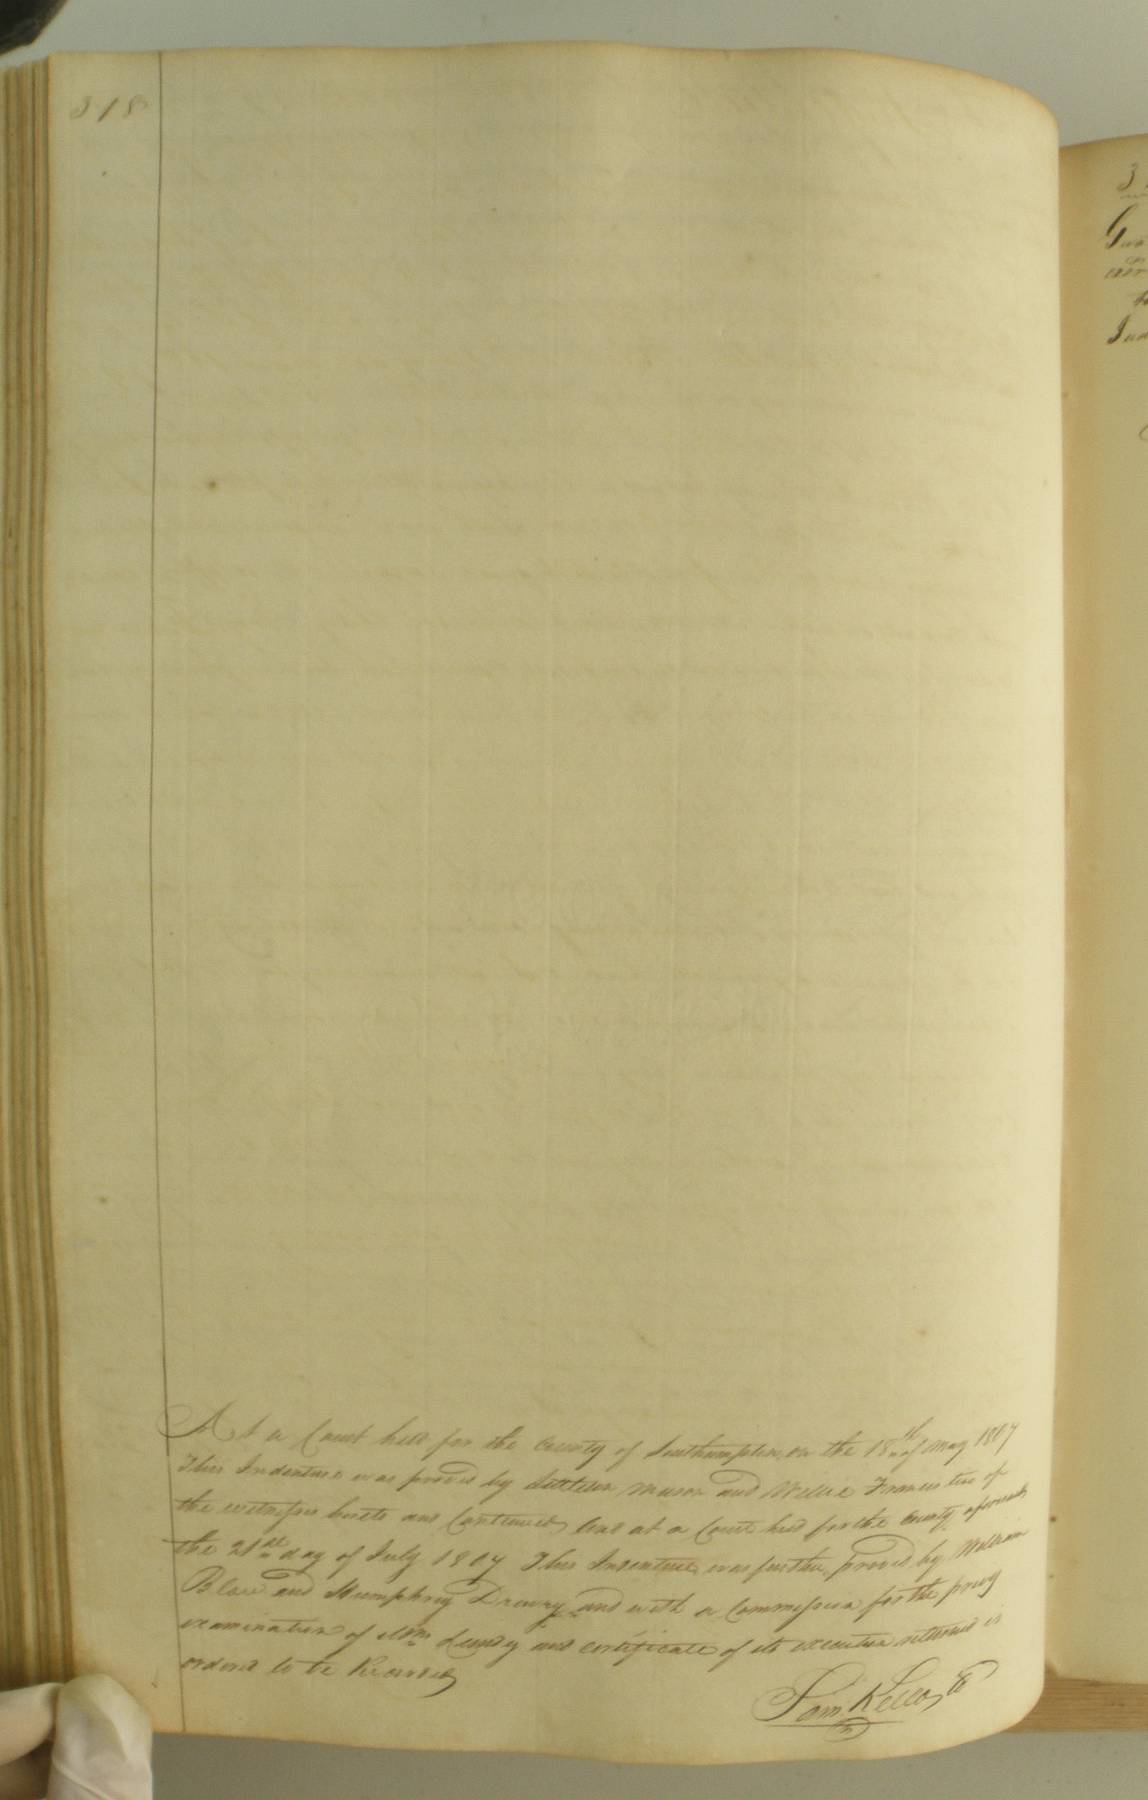 318
At a Court held for the County of Southampton, on the 18th of May 1807
This Indenture was proved by Littleton Mason and Willie Francis two of
the witnesses hereto and Continued, and at a Court held for the County aforesaid
the 21st day of July 1807 This Indenture was further proved by William
Blow and Humphrey Drewry and with a Commission for the privy
examination of Lundy and certificate of its execution returned is
ordered to be Recorded
Sam. Kello
3
to